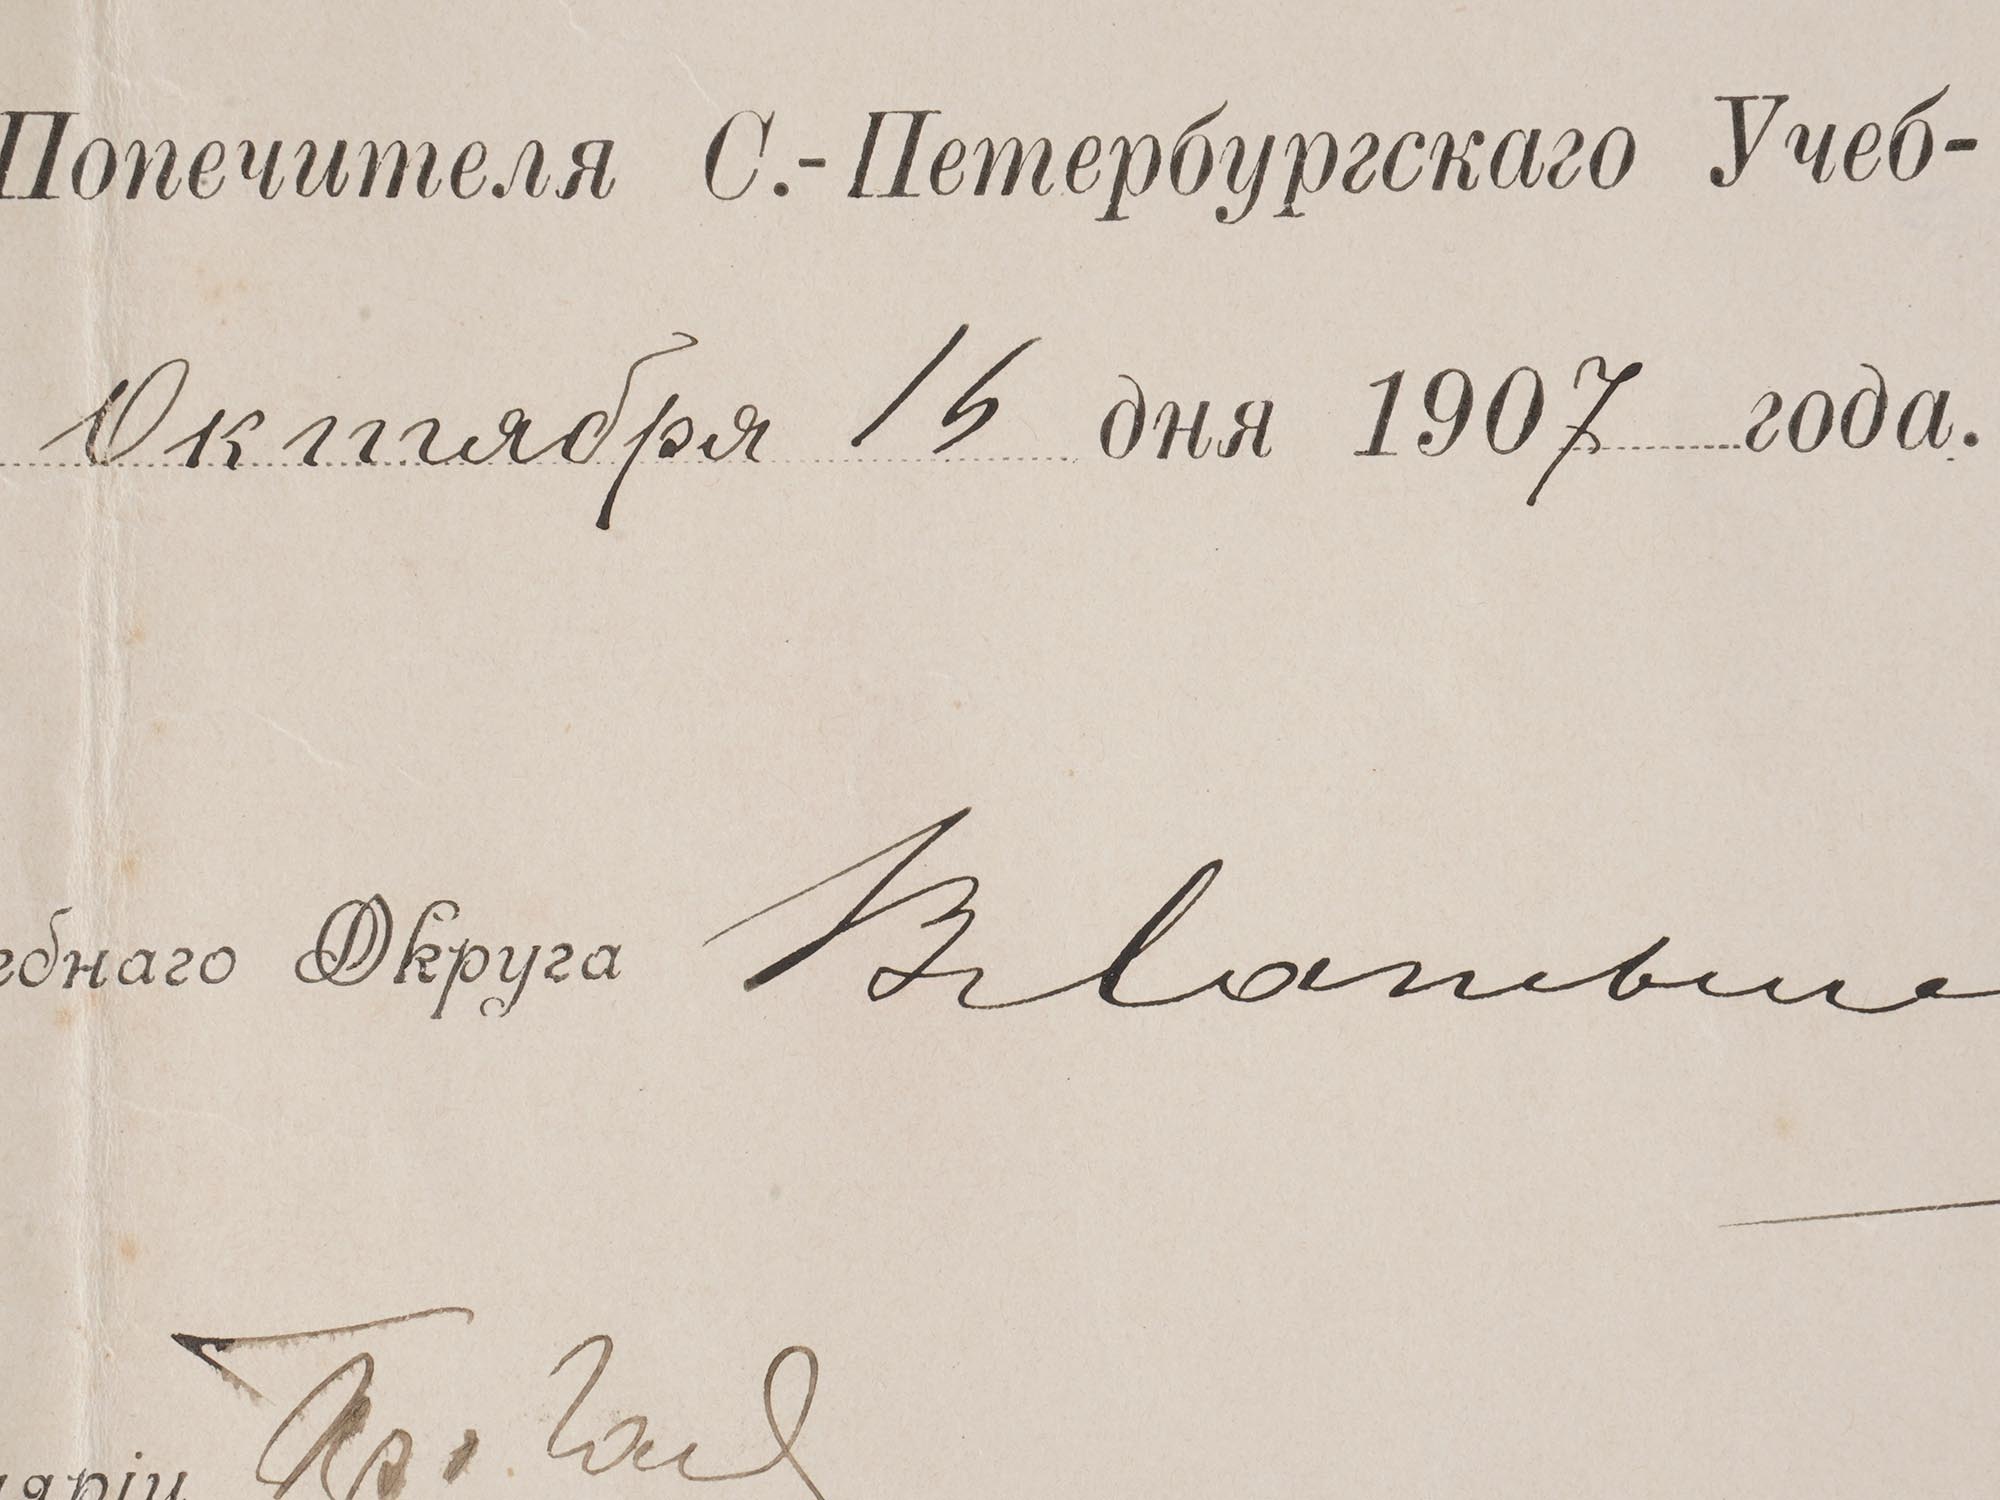 Попечителя С.-Петербургскаго Учеб-
Октября 15 дня 1907 года.
ебнаго Округа
ляріи